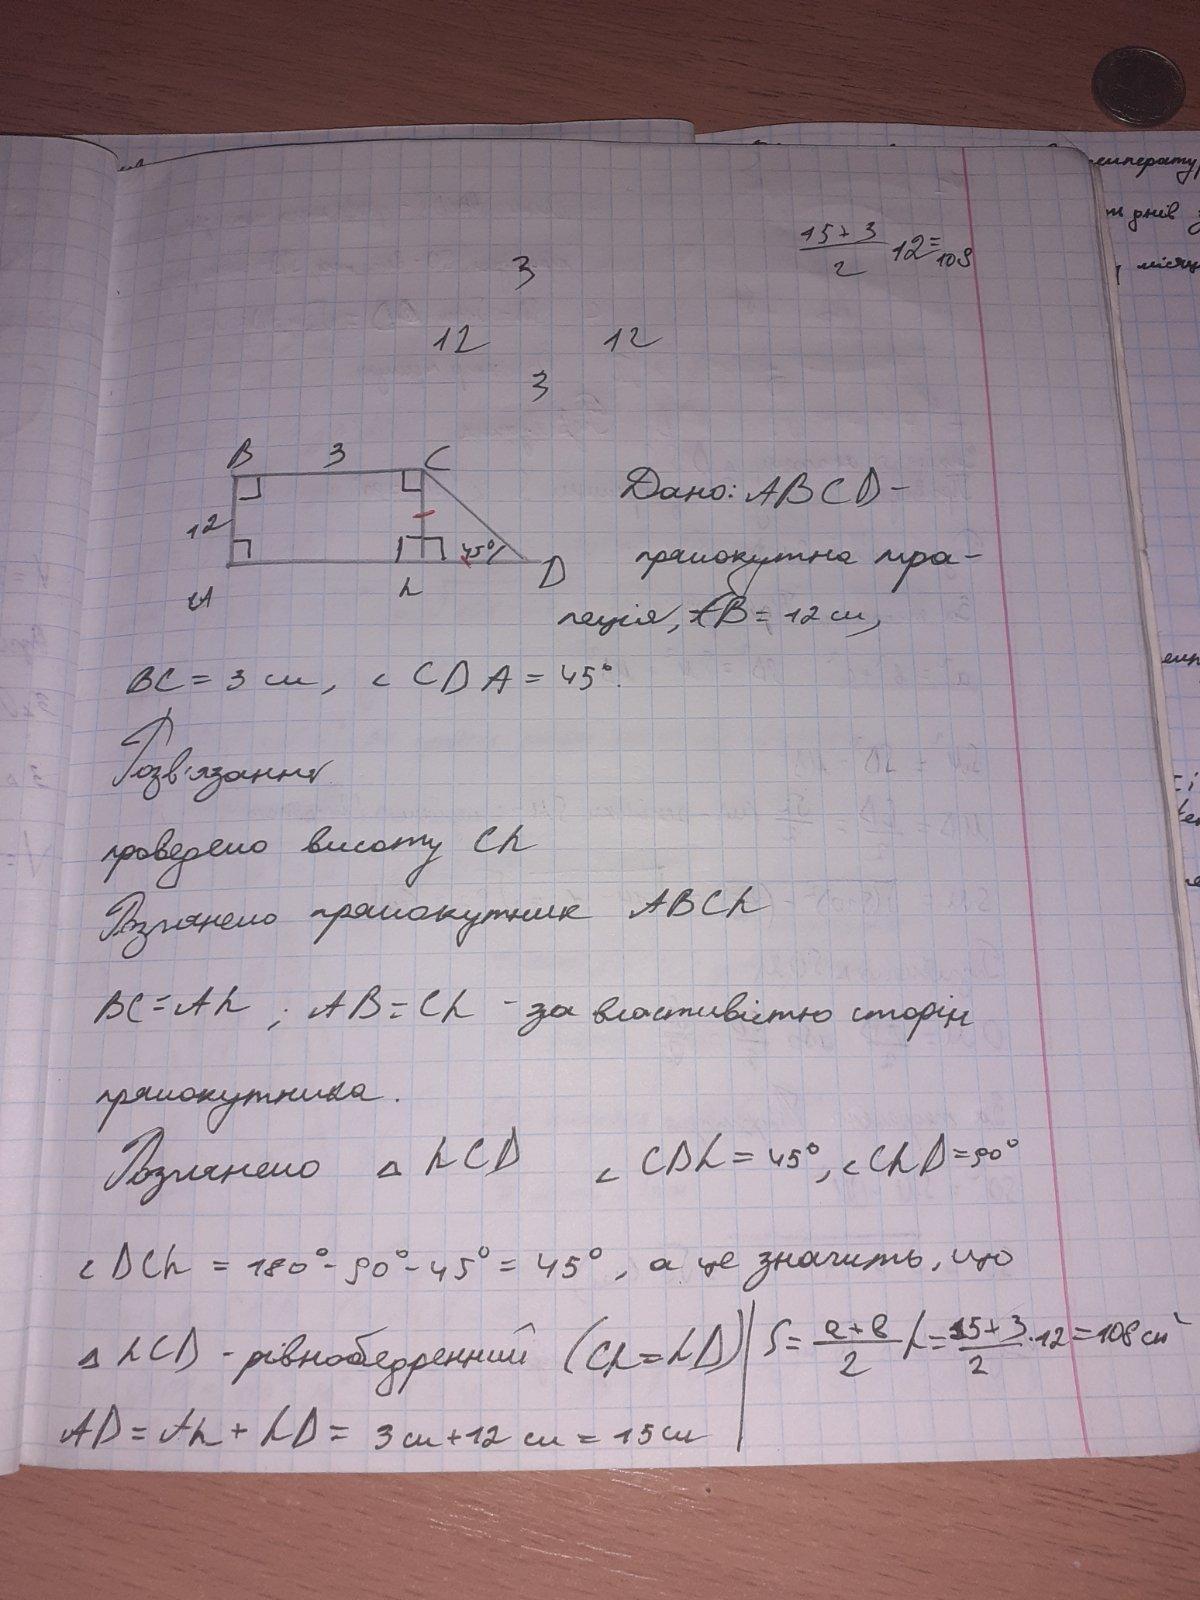 15+3
2
12=
108
3
12 12
3
B 3 C
12
45°
A h D
Дано: ABCD –
прямокутна тра-
пеція, AB = 12 см,
BC = 3 см, ∠ CDA = 45°.
Розв'язання
проведемо висоту Ch
Розглянемо прямокутник ABCh
BC = Ah ; AB = Ch - за властивістю сторін
прямокутника.
Розглянемо △ hCD ∠ CDh = 45°, ∠ChD = 90°
∠ DCh = 180° - 90° - 45° = 45°, а це значить, що
△ hCD - рівнобедренний (Ch = hD)
AD = Ah + hD = 3 см + 12 см = 15 см
S = a+b/2 h = 15+3/2 · 12 = 108 см²
температу
днів
місяц